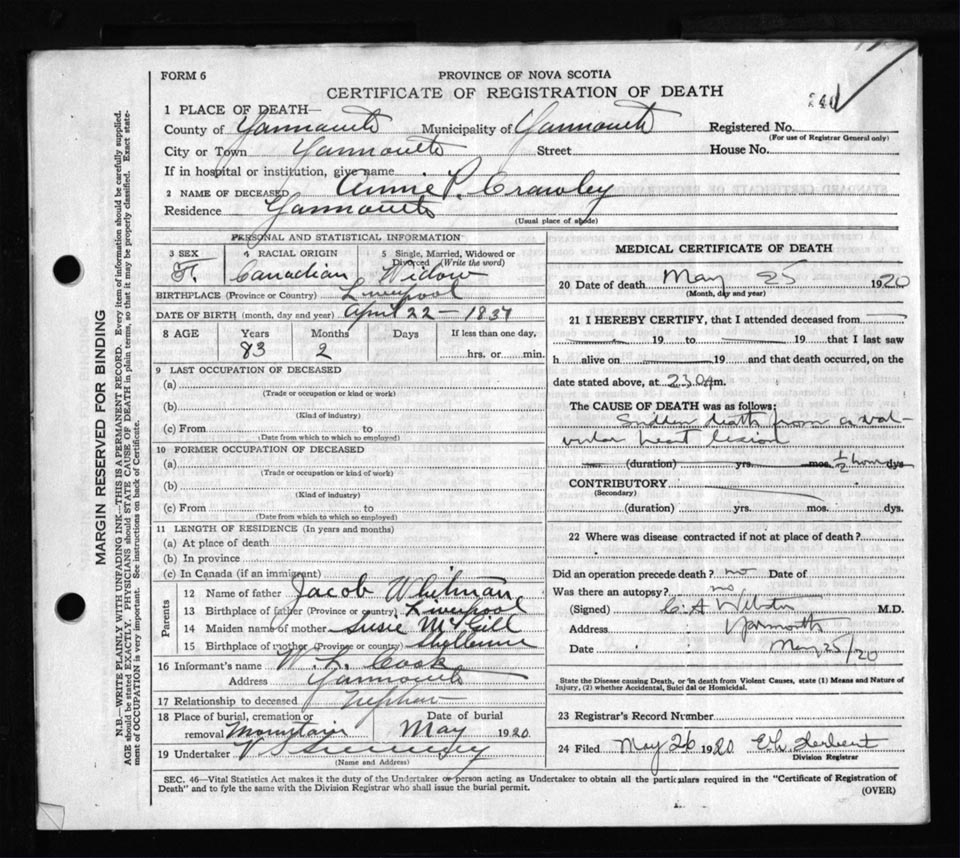 FORM 6
PROVINCE OF NOVA SCOTIA
CERTIFICATE OF REGISTRATION OF DEATH
240
1 PLACE OF DEATH—
County of Yarmouth Municipality of Yarmouth Registered No.
(For use of Registrar General only)
City or Town Yarmouth Street House No.
If in hospital or institution, give name
2 NAME OF DECEASED Annie P. Crawley
Residence Yarmouth
(Usual place of abode)
PERSONAL AND STATISTICAL INFORMATION
3 SEX 4 RACIAL ORIGIN 5 Single, Married, Widowed or Divorced (Write the word)
F. Canadian Widow
BIRTHPLACE (Province or Country) Liverpool
DATE OF BIRTH (month, day and year) April 22 – 1837
8 AGE Years Months Days If less than one day,
83 2 hrs. or min.
9 LAST OCCUPATION OF DECEASED
(a)
(Trade or occupation or kind or work)
(b)
(Kind of industry)
(c) From to
(Date from which to which so employed)
10 FORMER OCCUPATION OF DECEASED
(a)
(Trade or occupation or kind of work)
(b)
(Kind of industry)
(c) From to
(Date from which to which so employed)
11 LENGTH OF RESIDENCE (In years and months)
(a) At place of death
(b) In province
(c) In Canada (if an immigrant)
Parents
12 Name of father Jacob Whitman
13 Birthplace of father (Province or country) Liverpool
14 Maiden name of mother Susie McGill
15 Birthplace of mother (Province or country) Shelburne
16 Informant's name W. L. Cook
Address Yarmouth
17 Relationship to deceased Nephew
18 Place of burial, cremation or removal Mountain Date of burial May 1920.
19 Undertaker
(Name and Address)
MEDICAL CERTIFICATE OF DEATH
20 Date of death May 25 1920
(Month, day and year)
21 I HEREBY CERTIFY, that I attended deceased from
19 to 19 that I last saw
h alive on 19 and that death occurred, on the
date stated above, at 2.30 A m.
The CAUSE OF DEATH was as follows:
Sudden death from a val-
vular heart lesion
(duration) yrs. mos. ½ hour dys.
CONTRIBUTORY
(Secondary)
(duration) yrs. mos. dys.
22 Where was disease contracted if not at place of death?
Did an operation precede death? no Date of
Was there an autopsy? no
(Signed) C. A Webster M.D.
Address Yarmouth
Date May 25/20
State the Disease causing Death, or in death from Violent Causes, state (1) Means and Nature of
Injury, (2) whether Accidental, Suicidal or Homicidal.
23 Registrar's Record Number
24 Filed May 26 1920 E. L. Herbert
Division Registrar
SEC. 46—Vital Statistics Act makes it the duty of the Undertaker or person acting as Undertaker to obtain all the particulars required in the "Certificate of Registration of
Death" and to fyle the same with the Division Registrar who shall issue the burial permit.
(OVER)
MARGIN RESERVED FOR BINDING
N.B.—WRITE PLAINLY WITH UNFADING INK—THIS IS A PERMANENT RECORD. Every item of information should be carefully supplied.
AGE should be stated EXACTLY. PHYSICIANS should STATE CAUSE OF DEATH in plain terms, so that it may be properly classified. Exact state-
ment of OCCUPATION is very important. See instructions on back of Certificate.